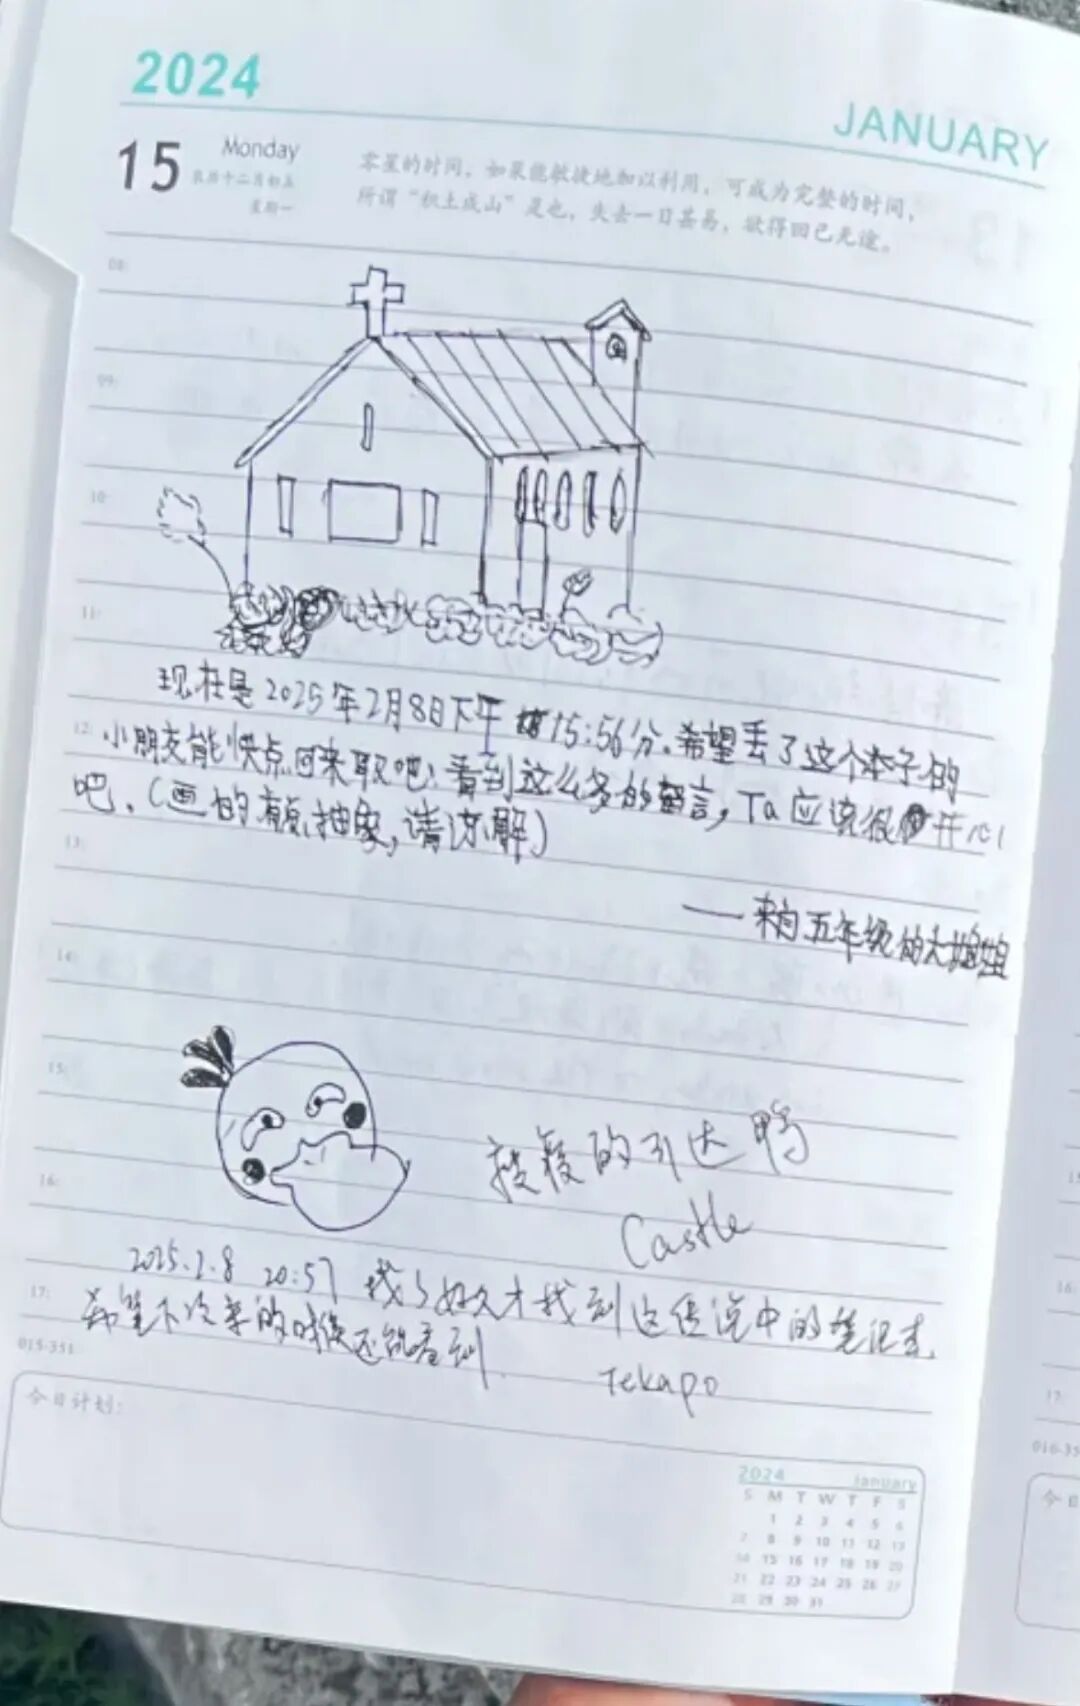 2024
JANUARY
15
Monday
农历十二月初五
星期一
零星的时间，如果能敏捷地加以利用，可成为完整的时间，
所谓“积土成山”是也，失去一日甚易，欲得回已无途。
08:
09:
10:
11:
现在是2025年2月8日下午15:56分.希望丢了这个本子的
12:
小朋友能快点回来取吧!看到这么多的留言,Ta应该很开心
吧.(画的有点抽象,请谅解)
13:
——来自五年级的大姐姐
14:
15:
的可达鸭
16:
Castle
2025.2.8 20:57 找了好久才找到这传说中的笔记本
17:
希望下次来的时候还能看到
015-351
Tekapo
今日计划:
2024 January
S M T W T F S
1 2 3 4 5 6
7 8 9 10 11 12 13
14 15 16 17 18 19 20
21 22 23 24 25 26 27
28 29 30 31
15
16:
17:
016-35
今日